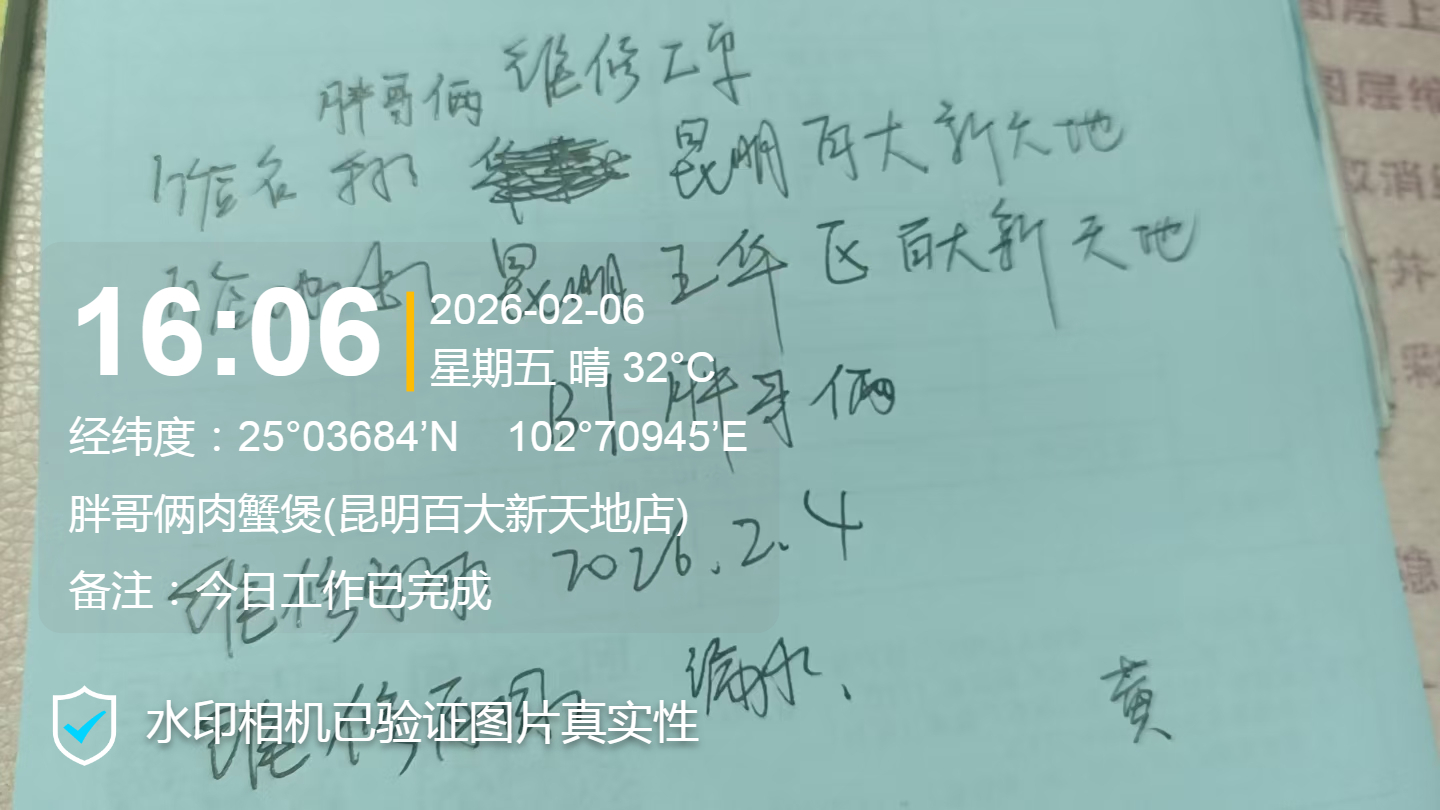 胖哥俩维修工单
门店名称 昆明百大新天地
门店地址 昆明五华区百大新天地
B1 胖哥俩
维修时间 2026.2.4
维修原因 漏水、 黄
16:06
2026-02-06
星期五 晴 32°C
经纬度：25°03684’N 102°70945’E
胖哥俩肉蟹煲(昆明百大新天地店)
备注：今日工作已完成
水印相机已验证图片真实性
图层上
图层缩
取消